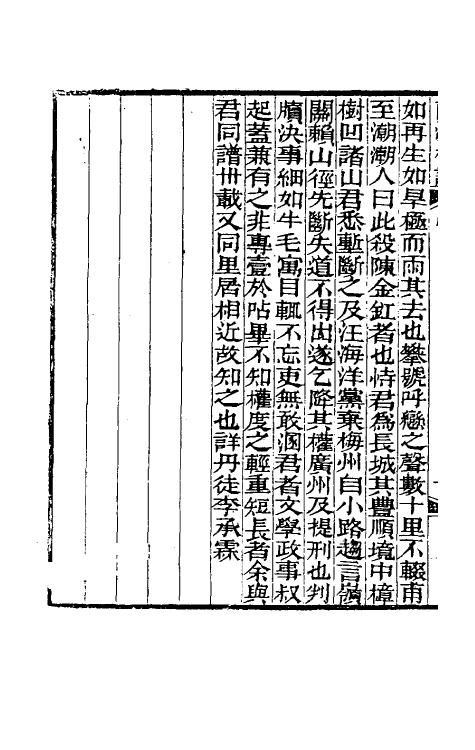 如再生如旱極而雨其去也攀號呼戀之聲數十里不輟甫
至潮潮人曰此殺陳金釭者也恃君爲長城其豐順境中樟
樹凹諸山君悉塹斷之及汪海洋黨棄梅州自小路趨言嶺
關賴山徑先斷失道不得出遂乞降其權廣州及提刑也判
牘決事細如牛毛寓目輒不忘吏無敢溷君者文學政事叔
起蓋兼有之非專壹於呫畢不知權度之輕重短長者余與
君同譜卅載又同里居相近故知之也詳丹徒李承霖